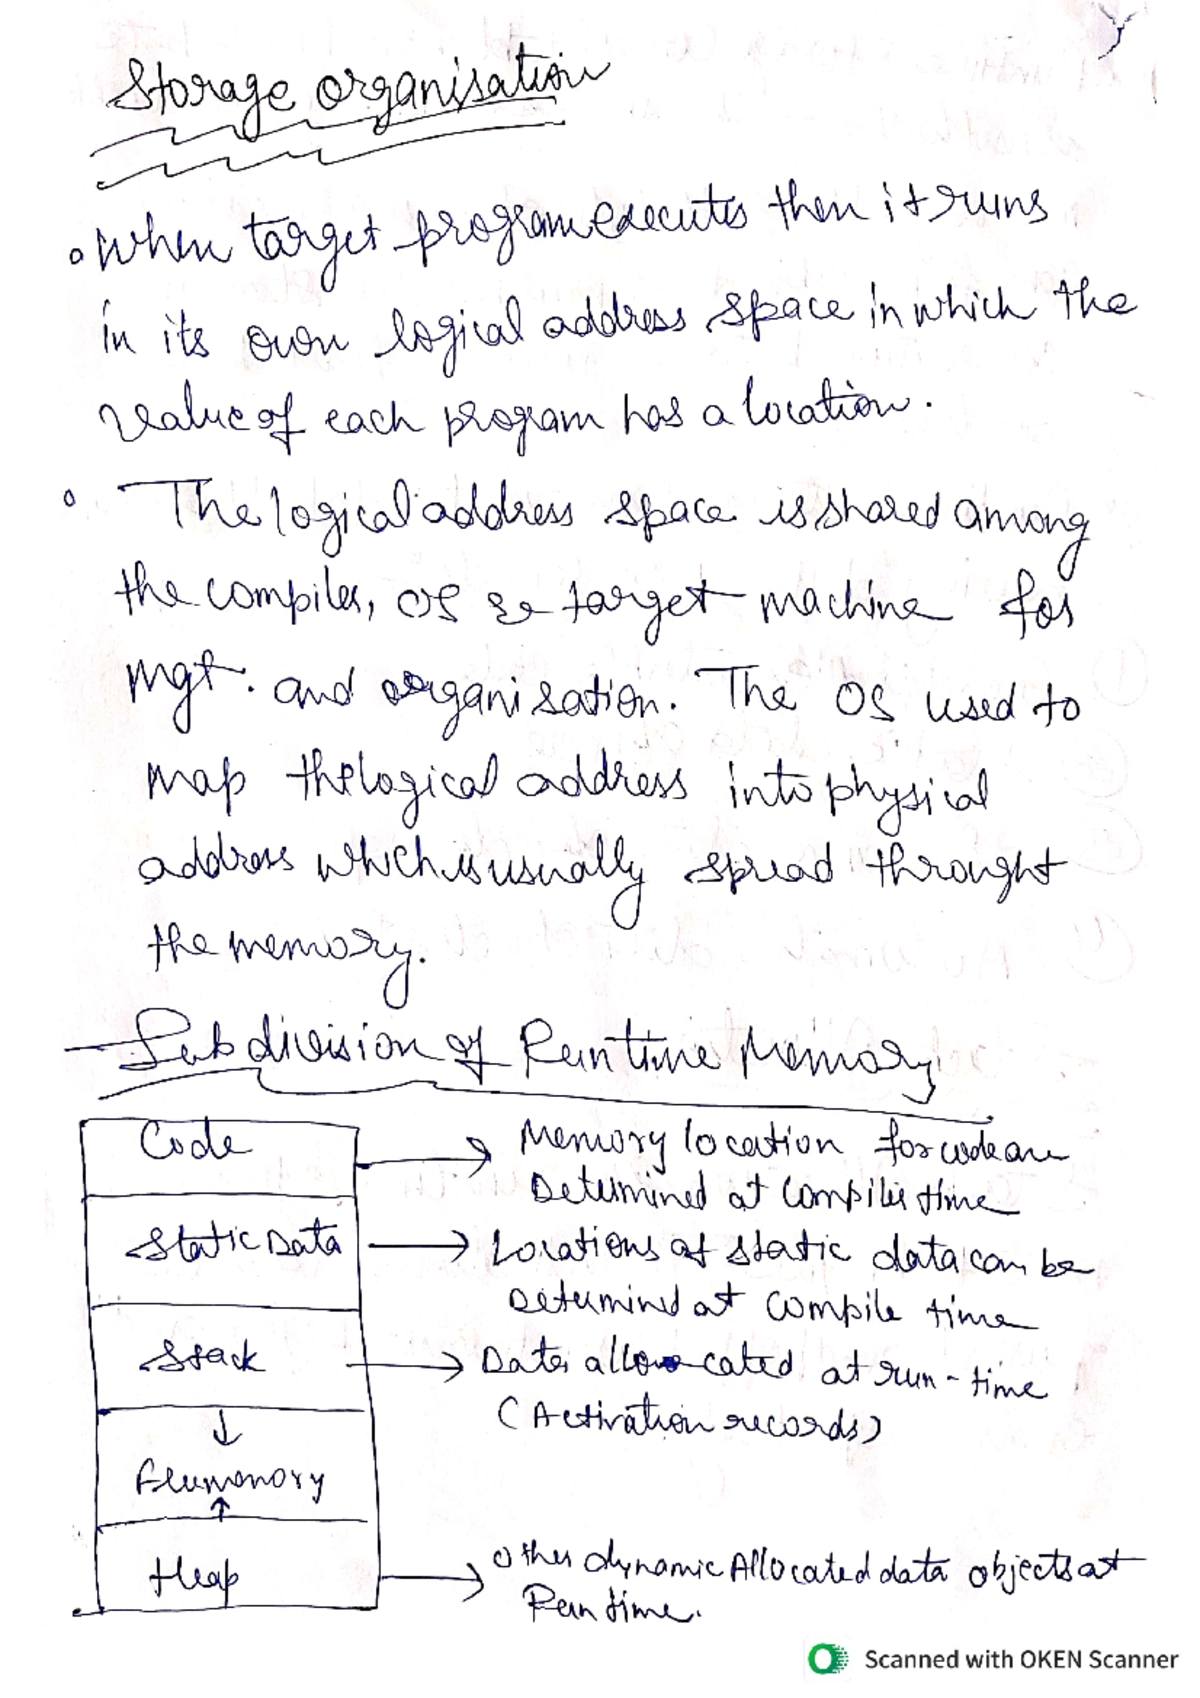 Storage organisation
o When target program executes then it runs
in its own logical address space in which the
value of each program has a location.
o The logical address space is shared among
the compiler, OS & target machine for
mgt. and organisation. The OS used to
map the logical address into physical
address which is usually spread throught
the memory.
Subdivision of Runtime Memory
Code → Memory location for code are
Determined at compiler time
Static Data → Locations of static data can be
Determined at compile time
Stack → Data allocated at run-time
(Activation records)
↓
Freememory
↑
Heap → other dynamic Allocated data objects at
Runtime.
Scanned with OKEN Scanner